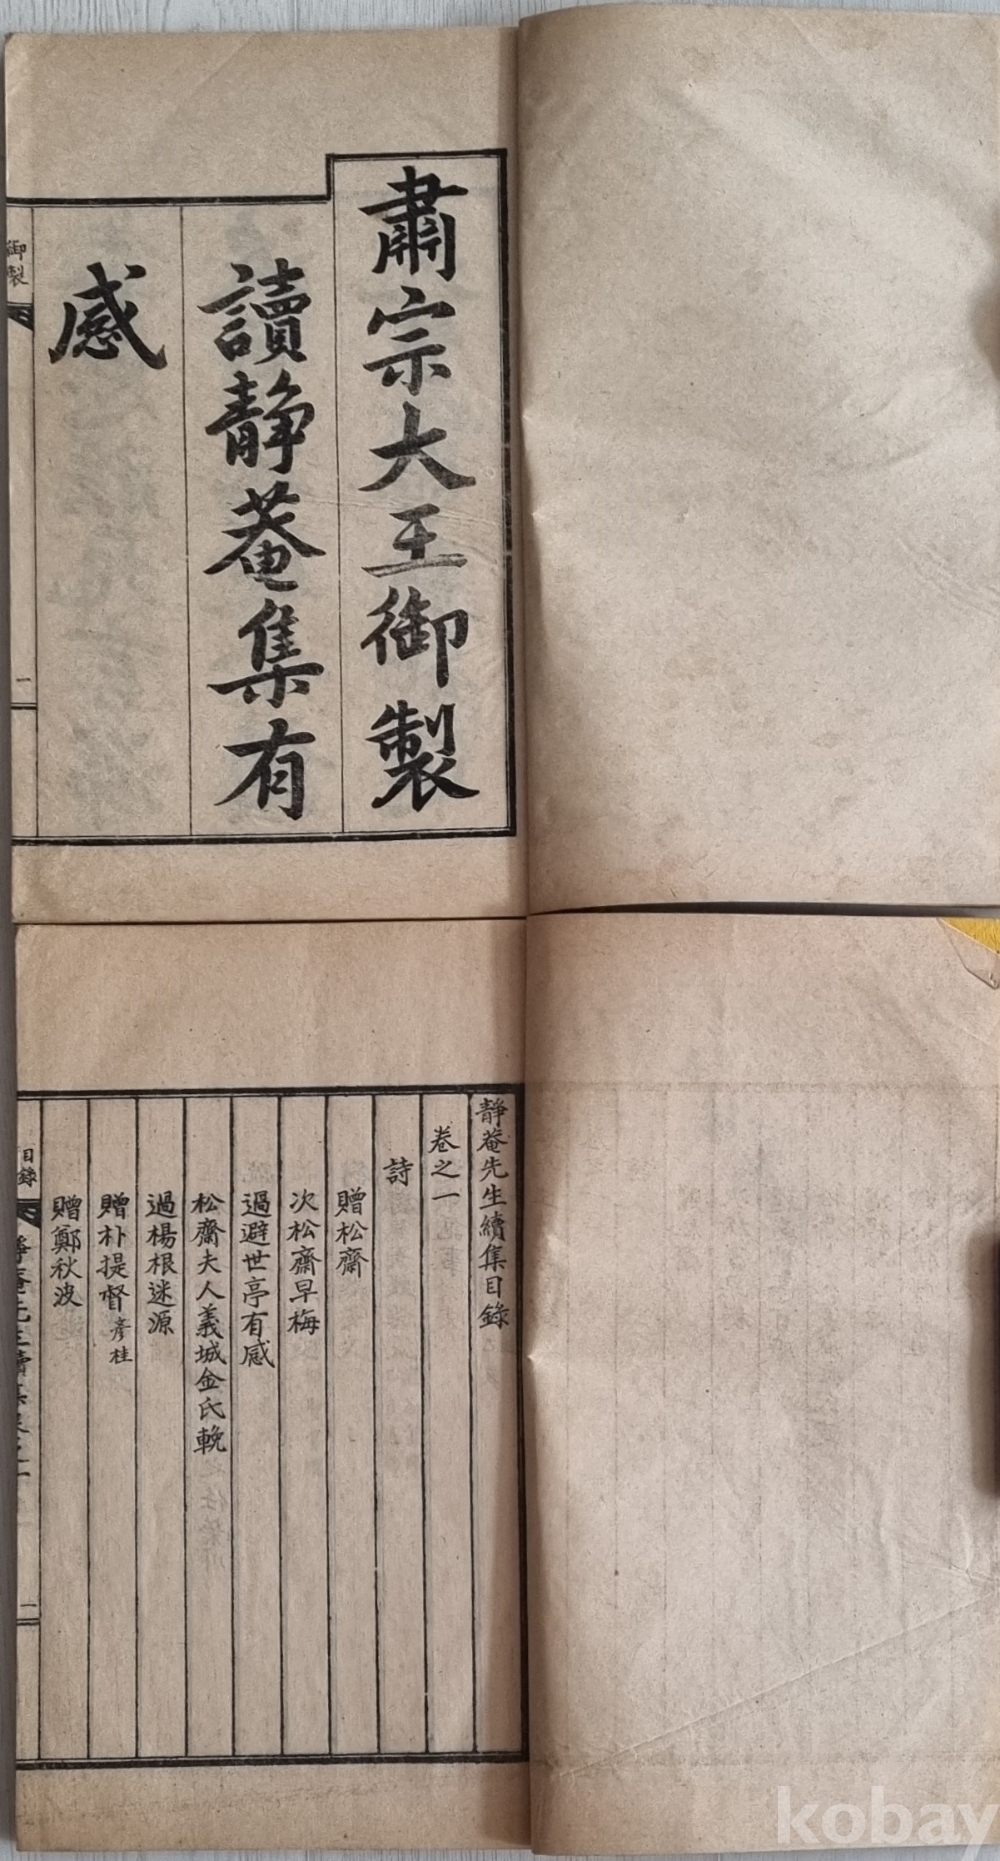 肅宗大王御製
讀静菴集有
感
御製
一
静菴先生續集目錄
卷之一
詩
贈松齋
次松齋早梅
過避世亭有感
松齋夫人義城金氏輓
過楊根迷源
贈朴提督彥桂
贈鄭秋波
目錄
一
kobay